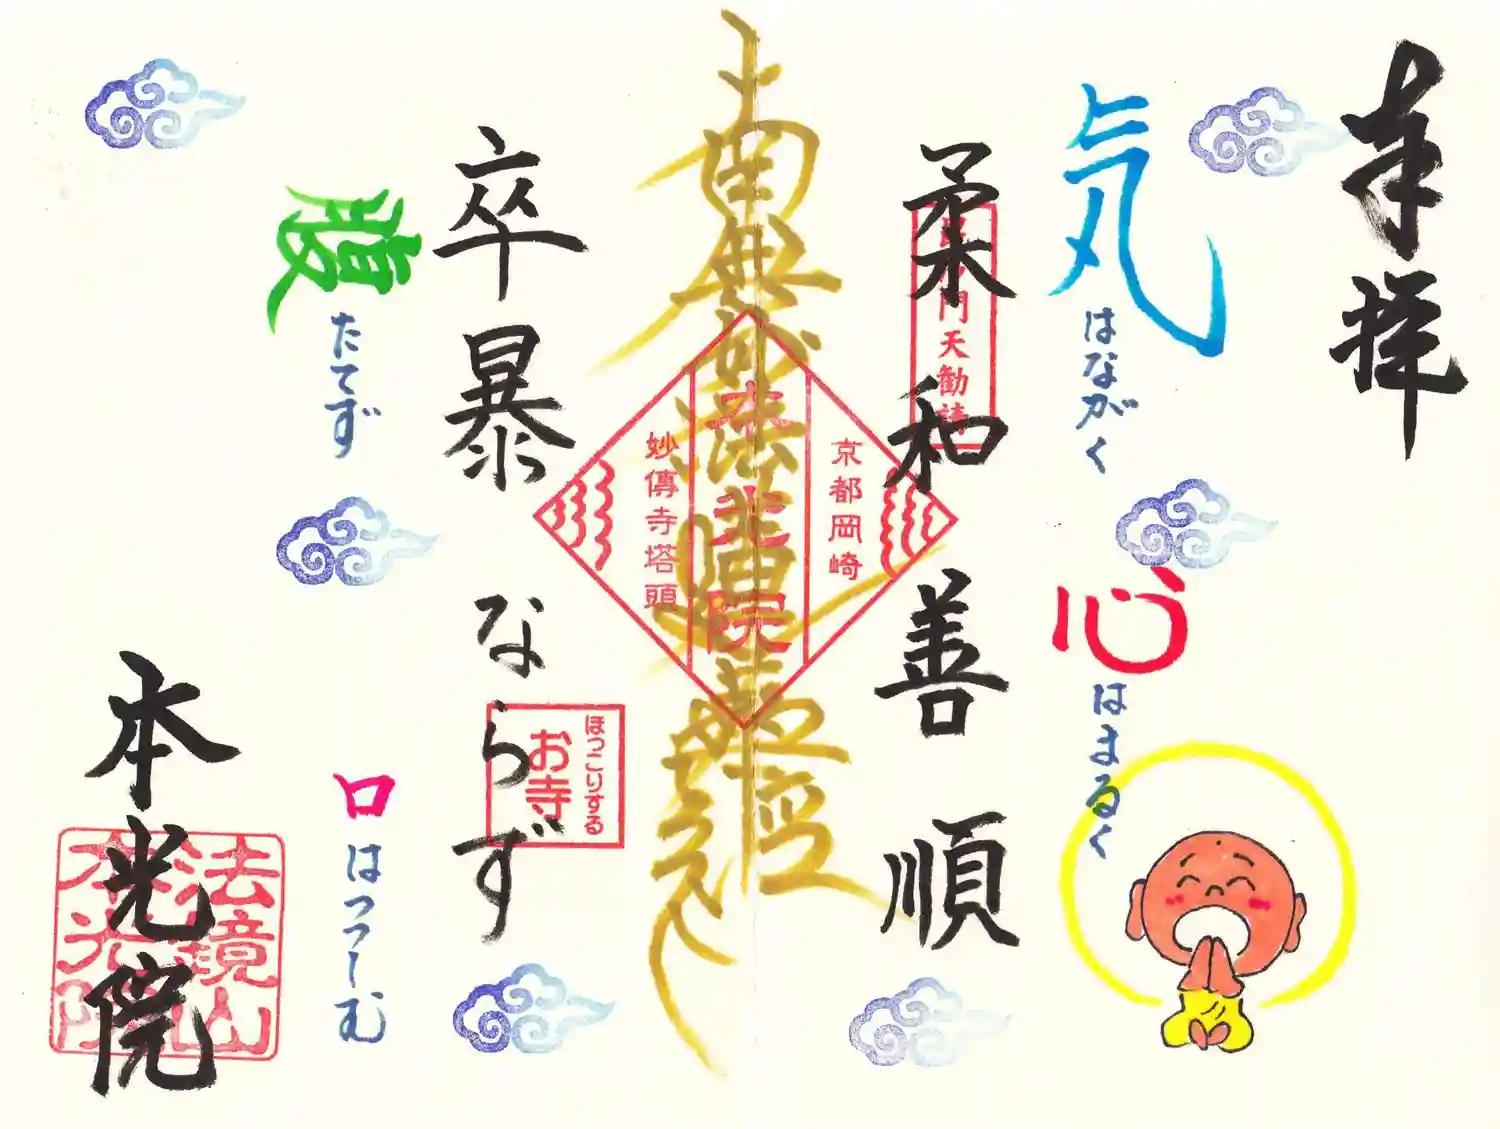 奉拝
気はながく
心はまるく
柔和善順
毘沙門天勧請
南無妙法蓮華経
京都岡崎
本光院
妙傳寺塔頭
卒暴ならず
ほっこりする
お寺
腹たてず
口はつつしむ
本光院
法鏡山
本光院